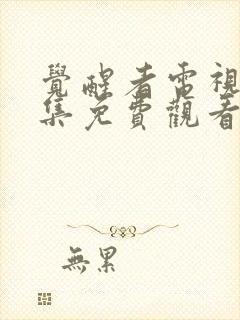 覺醒者電視
集免費觀看
無累